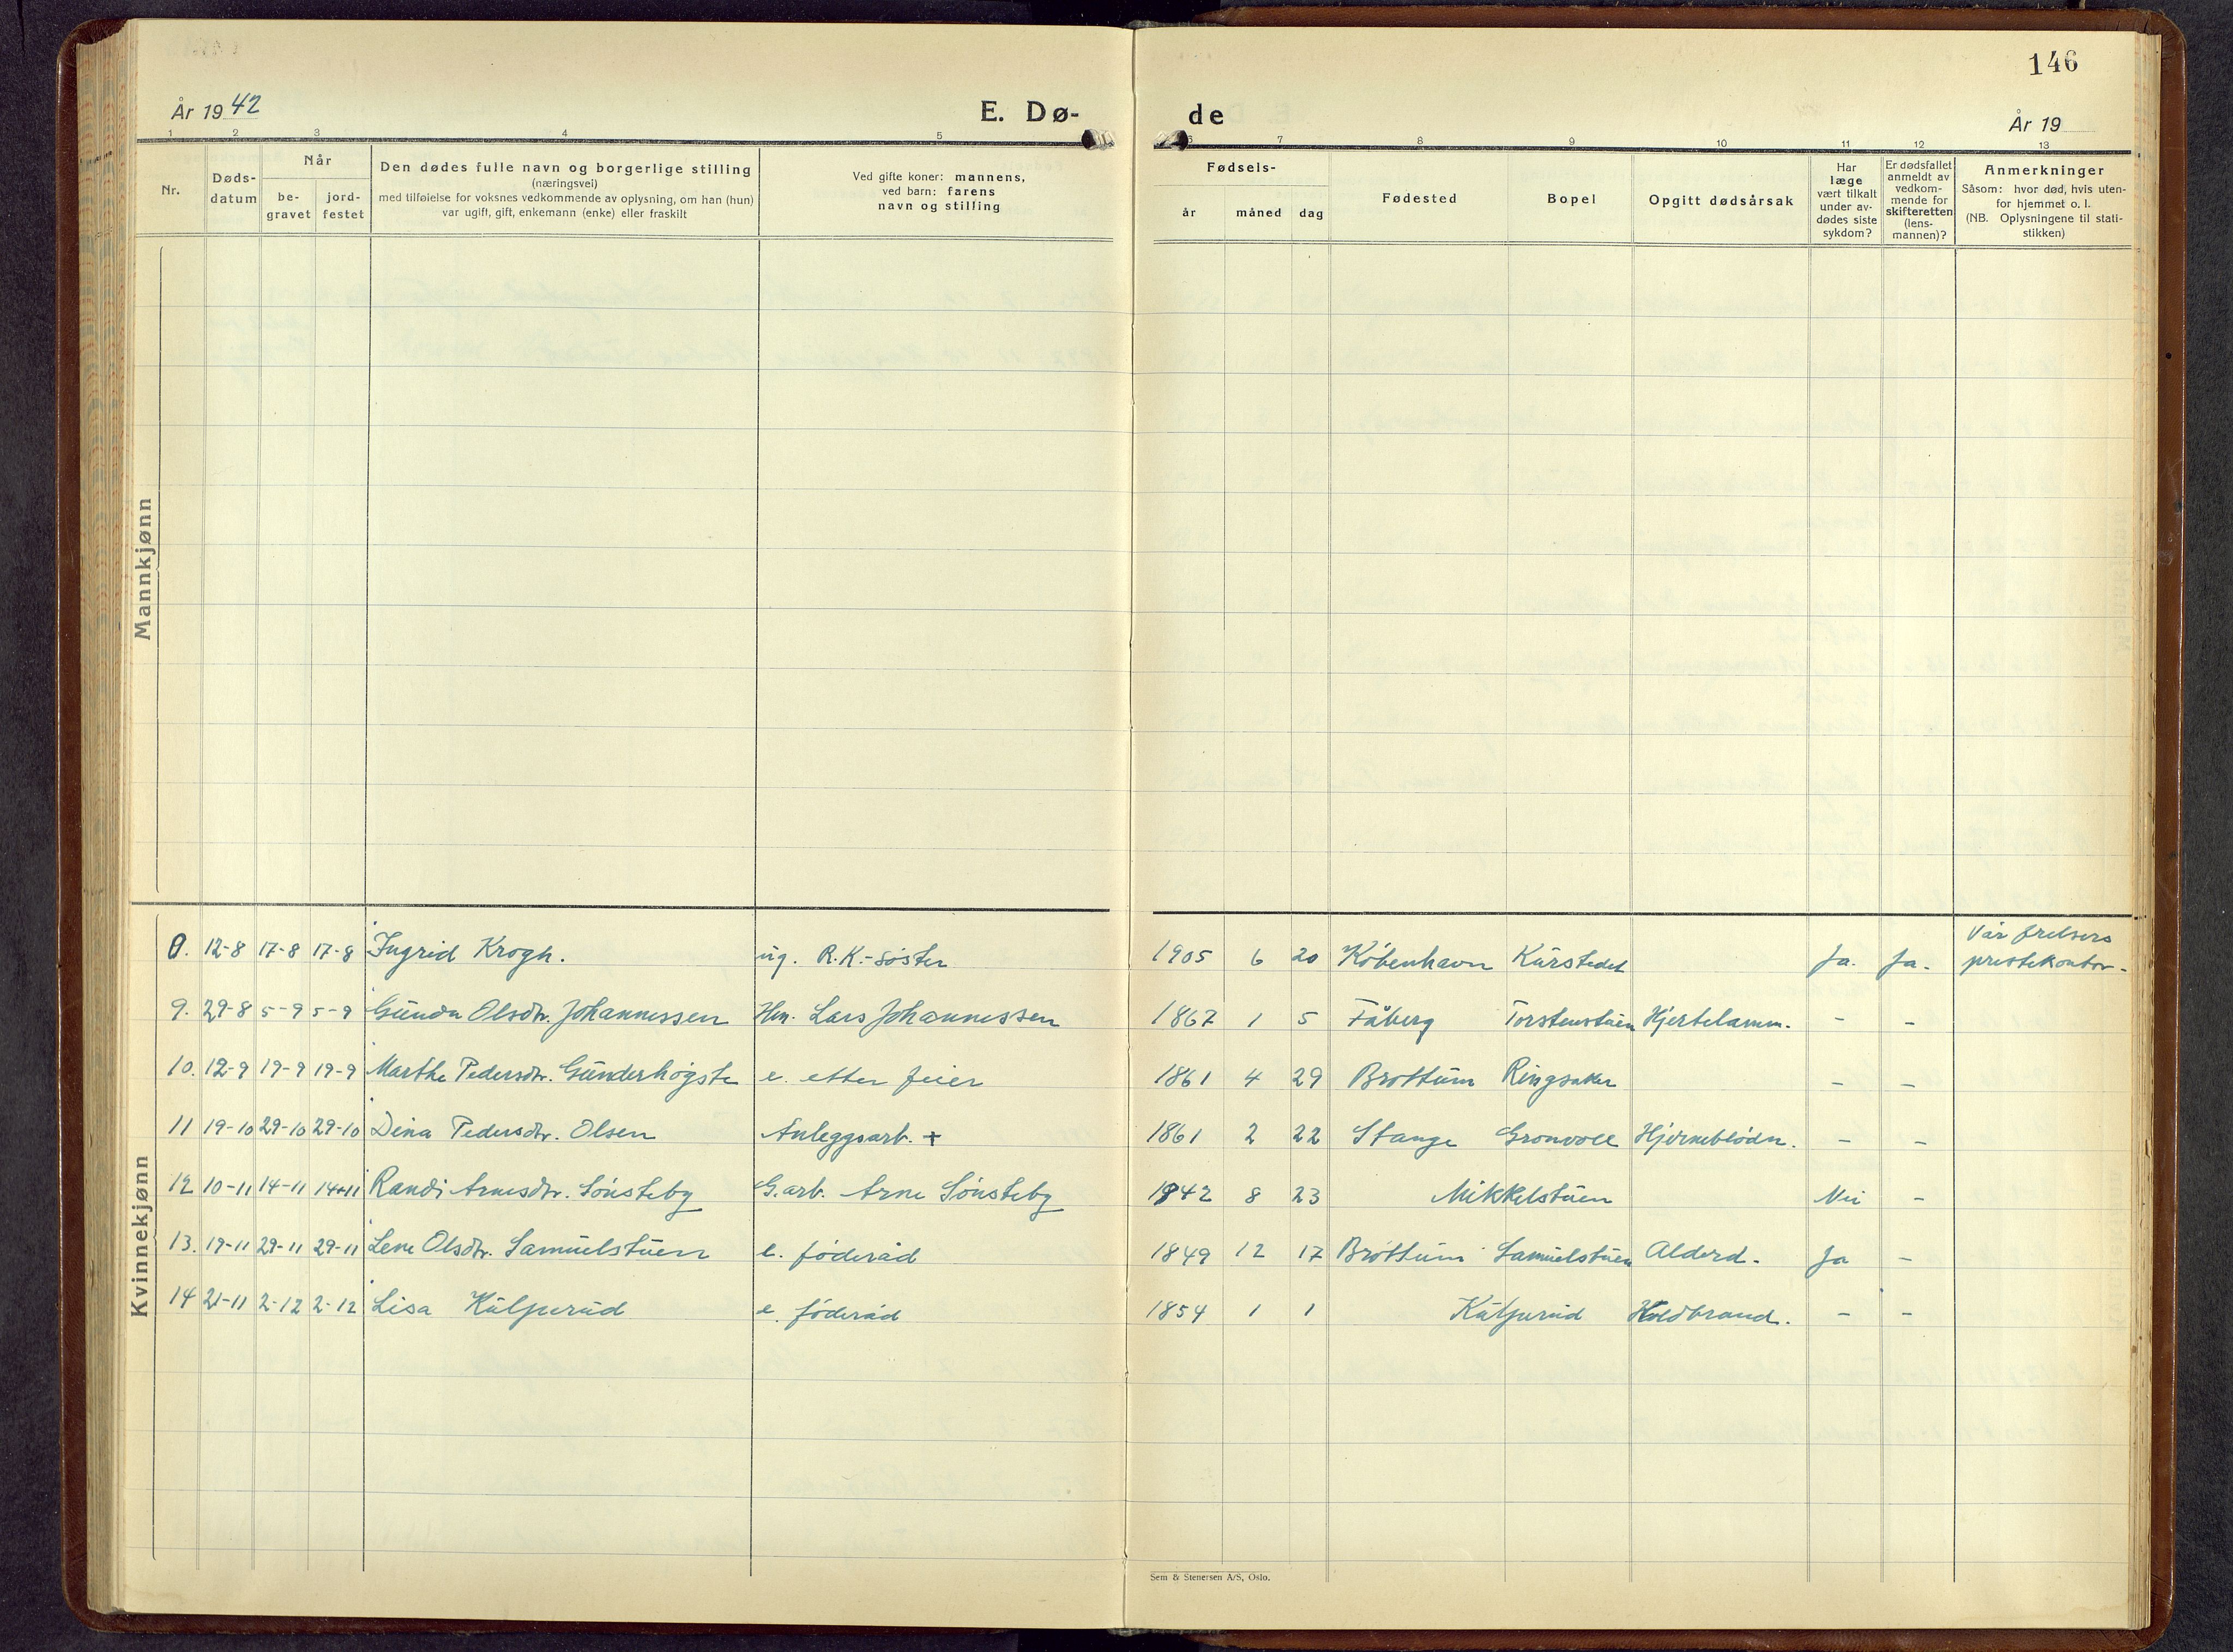 146
År 1942
E. Dø-
de
År 19
1 2 3 4 5
6 7 8 9 10 11 12 13
Nr.
Døds-
datum
Når
be-
gravet
jord-
festet
Den dødes fulle navn og borgerlige stilling
(næringsvei)
med tilføielse for voksnes vedkommende av oplysning, om han (hun)
var ugift, gift, enkemann (enke) eller fraskilt
Ved gifte koner: mannens,
ved barn: farens
navn og stilling
Fødsels-
år måned dag
Fødested
Bopel
Opgitt dødsårsak
Har
læge
vært tilkalt
under av-
dødes siste
sykdom?
Er dødsfallet
anmeldt av
vedkom-
mende for
skifteretten
(lens-
mannen)?
Anmerkninger
Såsom: hvor død, hvis uten-
for hjemmet o. l.
(NB. Oplysningene til stati-
stikken)
Mannkjønn
Kvinnekjønn
8. 12-8 17-8 17-8 Ingrid Krogh. ug. R.K.-søster 1905 6 20 København Kurstedet Ja. Ja. Vår frelsers
prestekontor.
9. 29-8 5-9 5-9 Gunda Olsdtr. Johannessen Hm. Lars Johannessen 1867 1 5 Fåberg Torstenstuen Hjertelamm. - -
10. 12-9 19-9 19-9 Marthe Pedersdtr. Gunderhøgste e. etter feier 1861 4 29 Brøttum Ringsaker - -
11 19-10 29-10 29-10 Dina Pedersdtr. Olsen Anleggsarb. + 1861 2 22 Stange Grønvoll Hjerneblødn. - -
12 10-11 14-11 14-11 Randi Arnesdtr. Sønsteby G.arb. Arne Sønsteby 1942 8 23 Mikkelstuen Nei -
13. 19-11 29-11 29-11 Lene Olsdtr. Samuelstuen e. føderåd 1849 12 17 Brøttum Samuelstuen Alderd. Ja -
14 21-11 2-12 2-12 Lisa Kulperud e. føderåd 1854 1 1 Kulperud Koldbrand. - -
Sem & Stenersen A/S, Oslo.